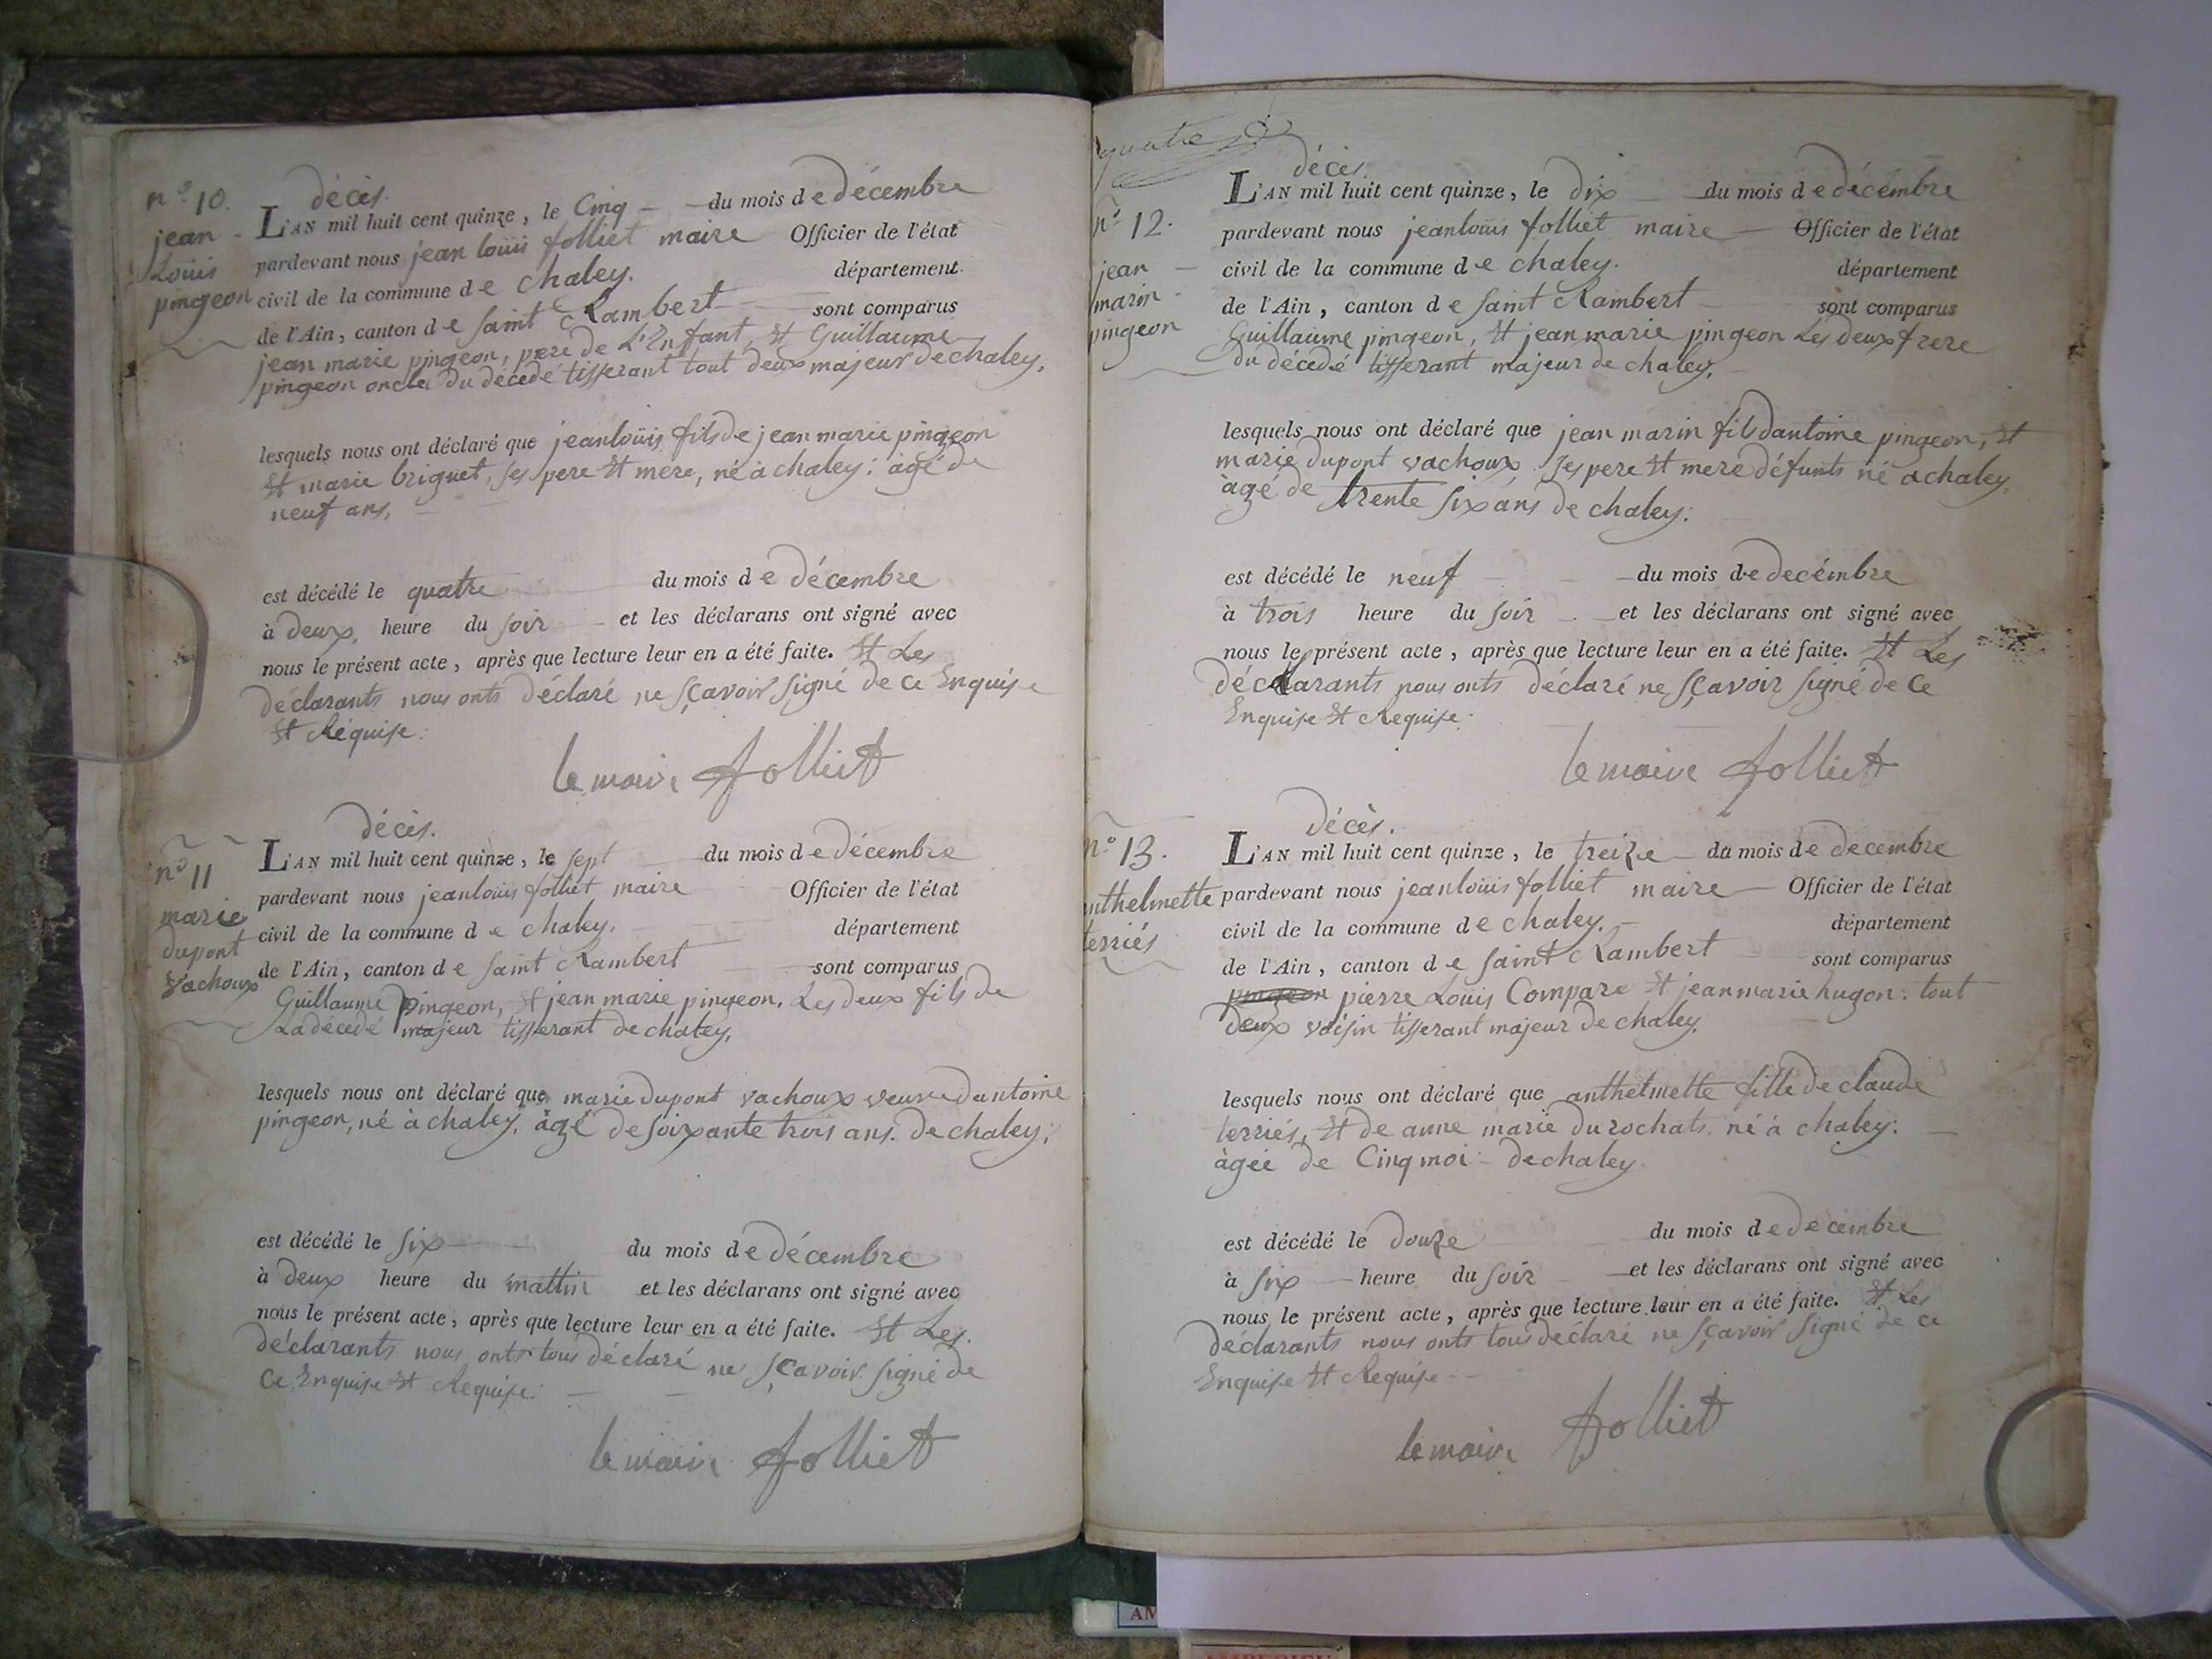 décès.
n.º 10.
jean
Loüis
pingeon
L'AN mil huit cent quinze, le Cinq du mois de décembre
pardevant nous jean loüis folliet maire Officier de l'état
civil de la commune de chaley. département
de l'Ain, canton de saint Rambert sont comparus
jean marie pingeon, pere de L'Enfant, Et Guillaume
pingeon oncle du décedé tisserant tout deux majeur de chaley.
lesquels nous ont déclaré que jean loüis fils de jean marie pingeon
Et marie briguet, ses pere Et mere, né à chaley; agé de
neuf ans,
est décédé le quatre du mois de décembre
à deux, heure du soir et les déclarans ont signé avec
nous le présent acte, après que lecture leur en a été faite. Et Les
déclarants nous onts déclaré ne sçavoir signé de ce Enquise
Et Réquise.
le maire folliet
décès.
n.º 11
marie
dupont
vachoux
L'AN mil huit cent quinze, le sept du mois de décembre
pardevant nous jean loüis folliet maire Officier de l'état
civil de la commune de chaley. département
de l'Ain, canton de saint Rambert sont comparus
Guillaume pingeon, Et jean marie pingeon, Les deux fils de
La décedé majeur tisserant de chaley,
lesquels nous ont déclaré que marie dupont vachoux veuve dantoine
pingeon, né à chaley, âgé de soixante trois ans. de chaley;
est décédé le six du mois de décembre
à deux heure du mattin et les déclarans ont signé avec
nous le présent acte, après que lecture leur en a été faite. Et Les
déclarants nous onts tous déclaré ne sçavoir signé de
ce Enquise Et Requise.
le maire folliet
quatre
décès.
n.º 12.
jean
marin
pingeon
L'AN mil huit cent quinze, le dix du mois de décembre
pardevant nous jean loüis folliet maire Officier de l'état
civil de la commune de chaley. département
de l'Ain, canton de saint Rambert sont comparus
Guillaume pingeon, Et jean marie pingeon Les deux frere
du décedé tisserant majeur de chaley,
lesquels nous ont déclaré que jean marin fils dantoine pingeon, Et
marie dupont vachoux, ses pere Et mere défunts né a chaley,
âgé de trente six ans de chaley;
est décédé le neuf du mois de decémbre
à trois heure du soir et les déclarans ont signé avec
nous le présent acte, après que lecture leur en a été faite. Et Les
déclarants nous onts déclaré ne sçavoir signé de ce
Enquise Et Requise.
le maire folliet
décès.
n.º 13.
anthelmette
terriés
L'AN mil huit cent quinze, le treize du mois de decembre
pardevant nous jean loüis folliet maire Officier de l'état
civil de la commune de chaley. département
de l'Ain, canton de saint Rambert sont comparus
pingeon pierre Louis Compare Et jean marie hugon. tout
deux voisin tisserant majeur de chaley,
lesquels nous ont déclaré que anthelmette fille de claude
terriés, Et de anne marie durochats né à chaley.
âgée de Cinq moi de chaley.
est décédé le douze du mois de decembre
à six heure du soir et les déclarans ont signé avec
nous le présent acte, après que lecture leur en a été faite. Et Les
déclarants nous onts tous déclaré ne sçavoir signé de ce
Enquise Et Requise
le maire folliet
AM